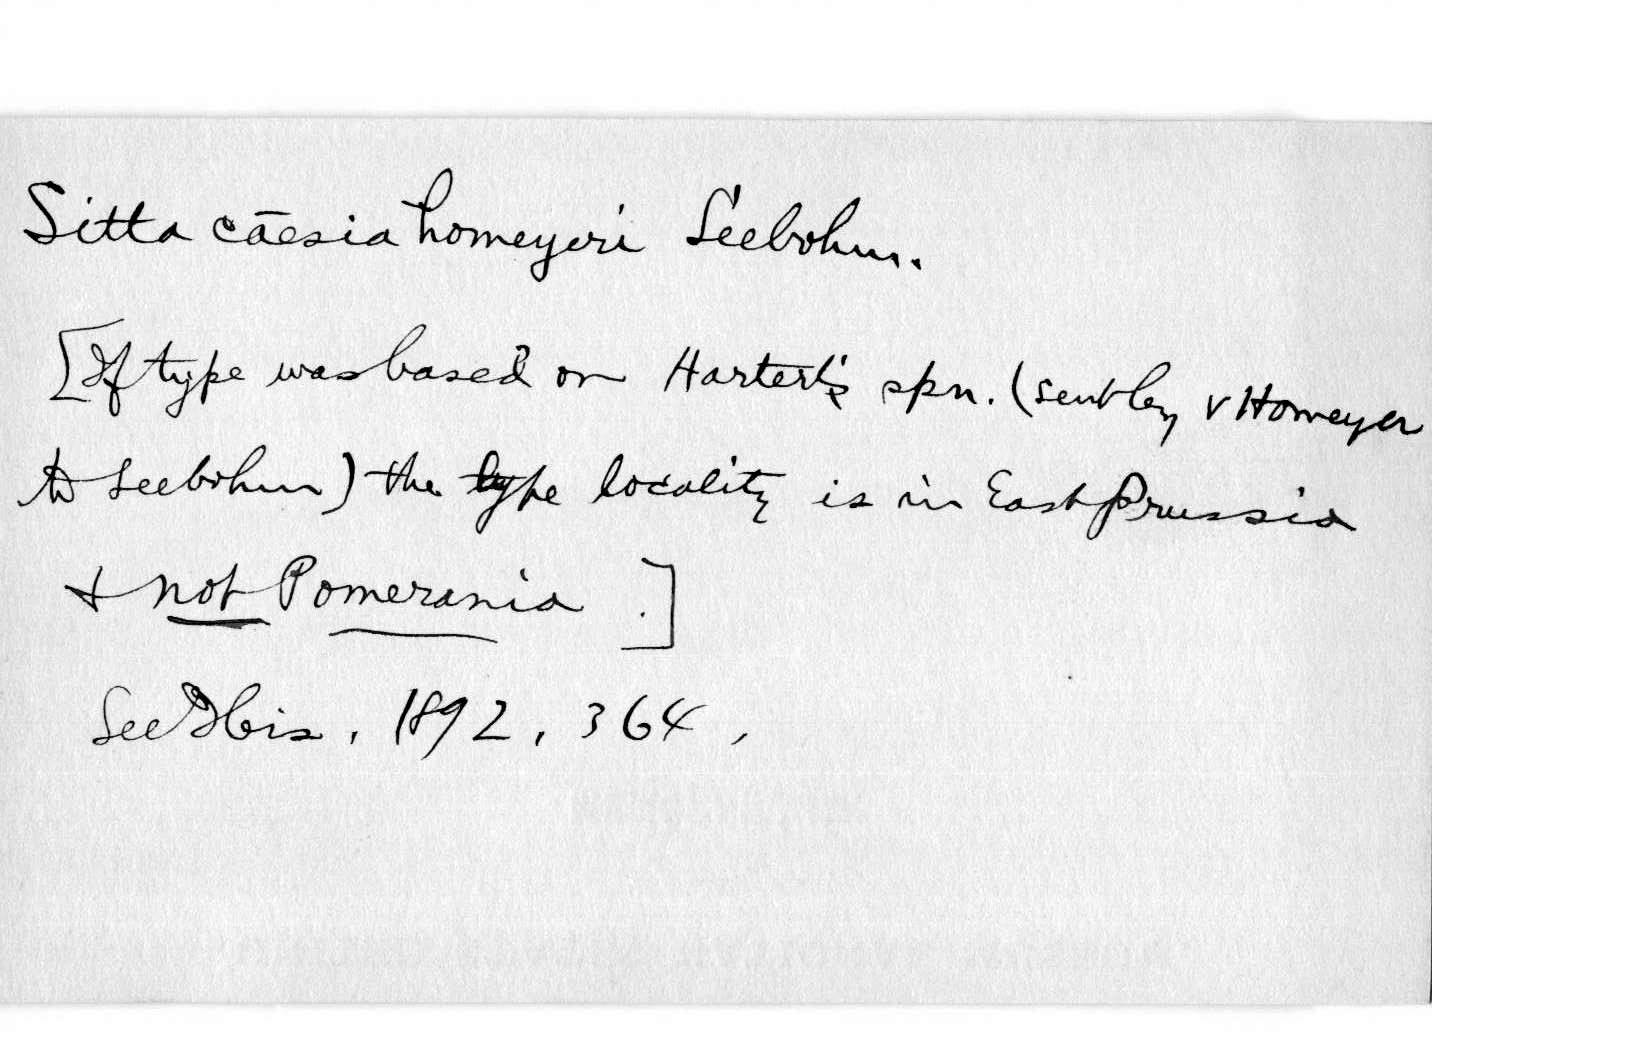 Sitta cāesia homeyeri Seebohm.
[If type was based on Hartert's spn. (sent by v Homeyer
to Seebohm) the type locality is in East Prussia
& not Pomerania.]
See Ibis, 1892, 364,